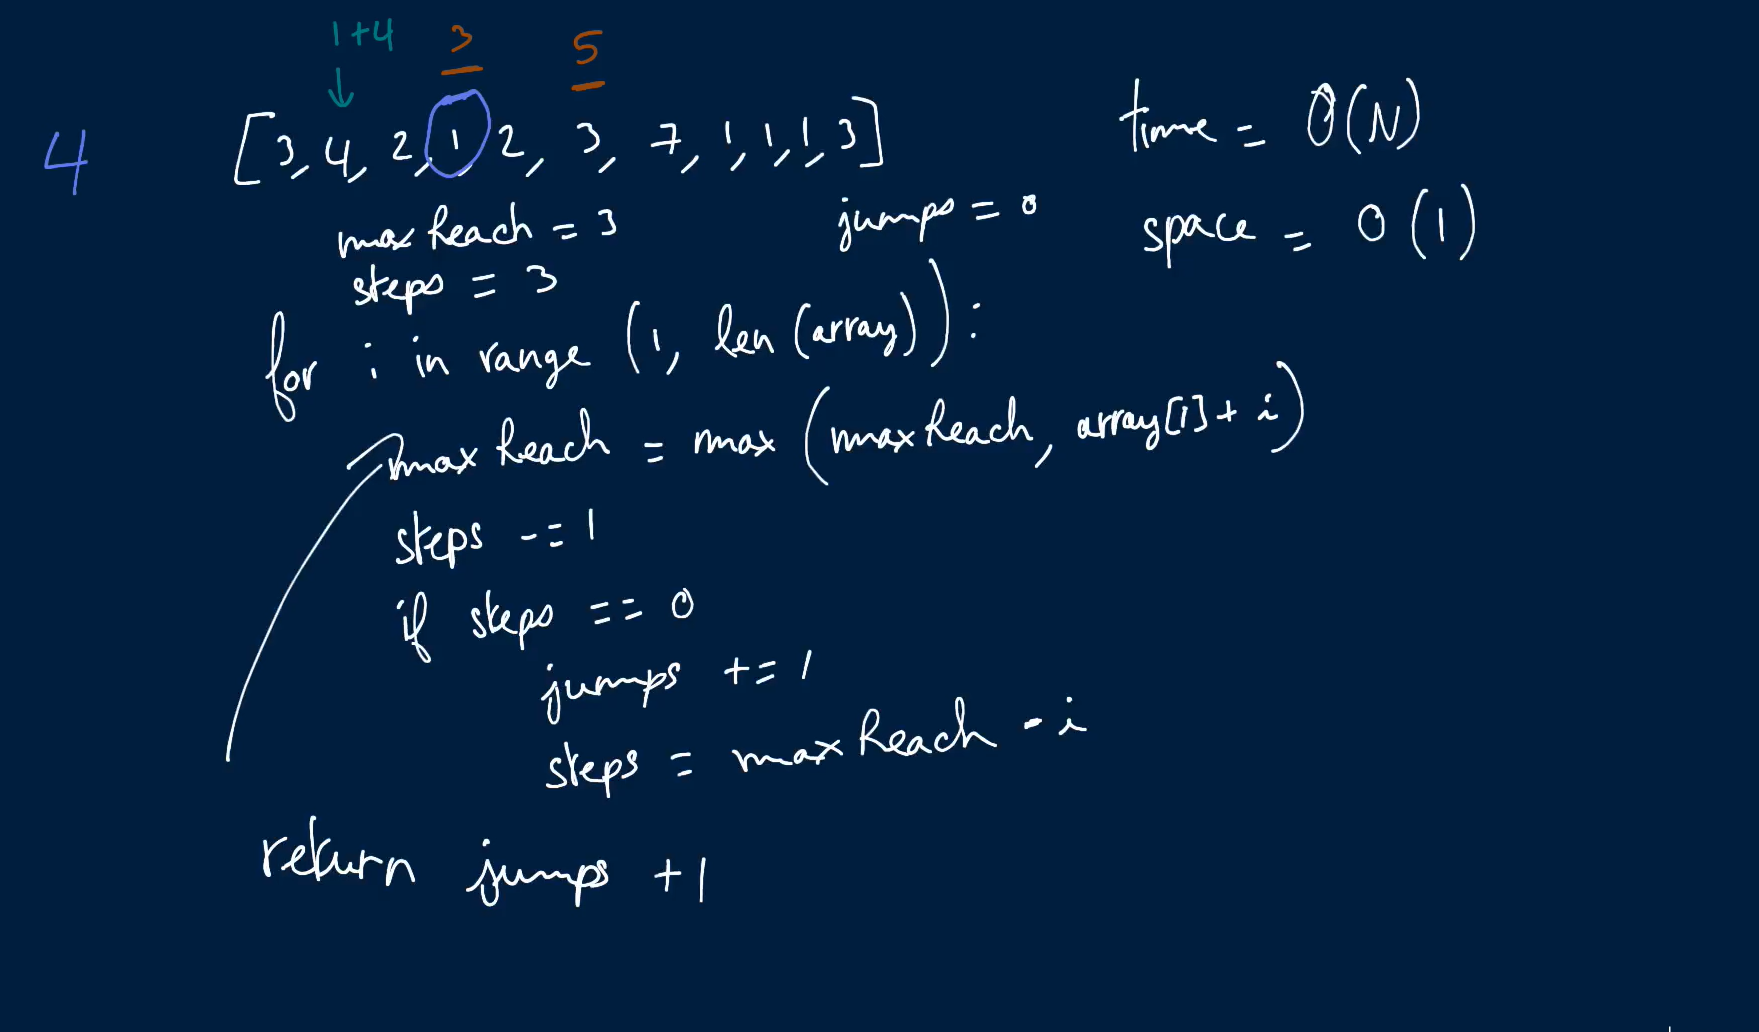 1+4 3 5
4 [3, 4, 2, 1, 2, 3, 7, 1, 1, 1, 3] time = O(N)
maxReach = 3 jumps = 0 space = O(1)
steps = 3
for i in range (1, len (array)):
maxReach = max (maxReach, array[i] + i)
steps -= 1
if steps == 0
jumps += 1
steps = maxReach - i
return jumps +1